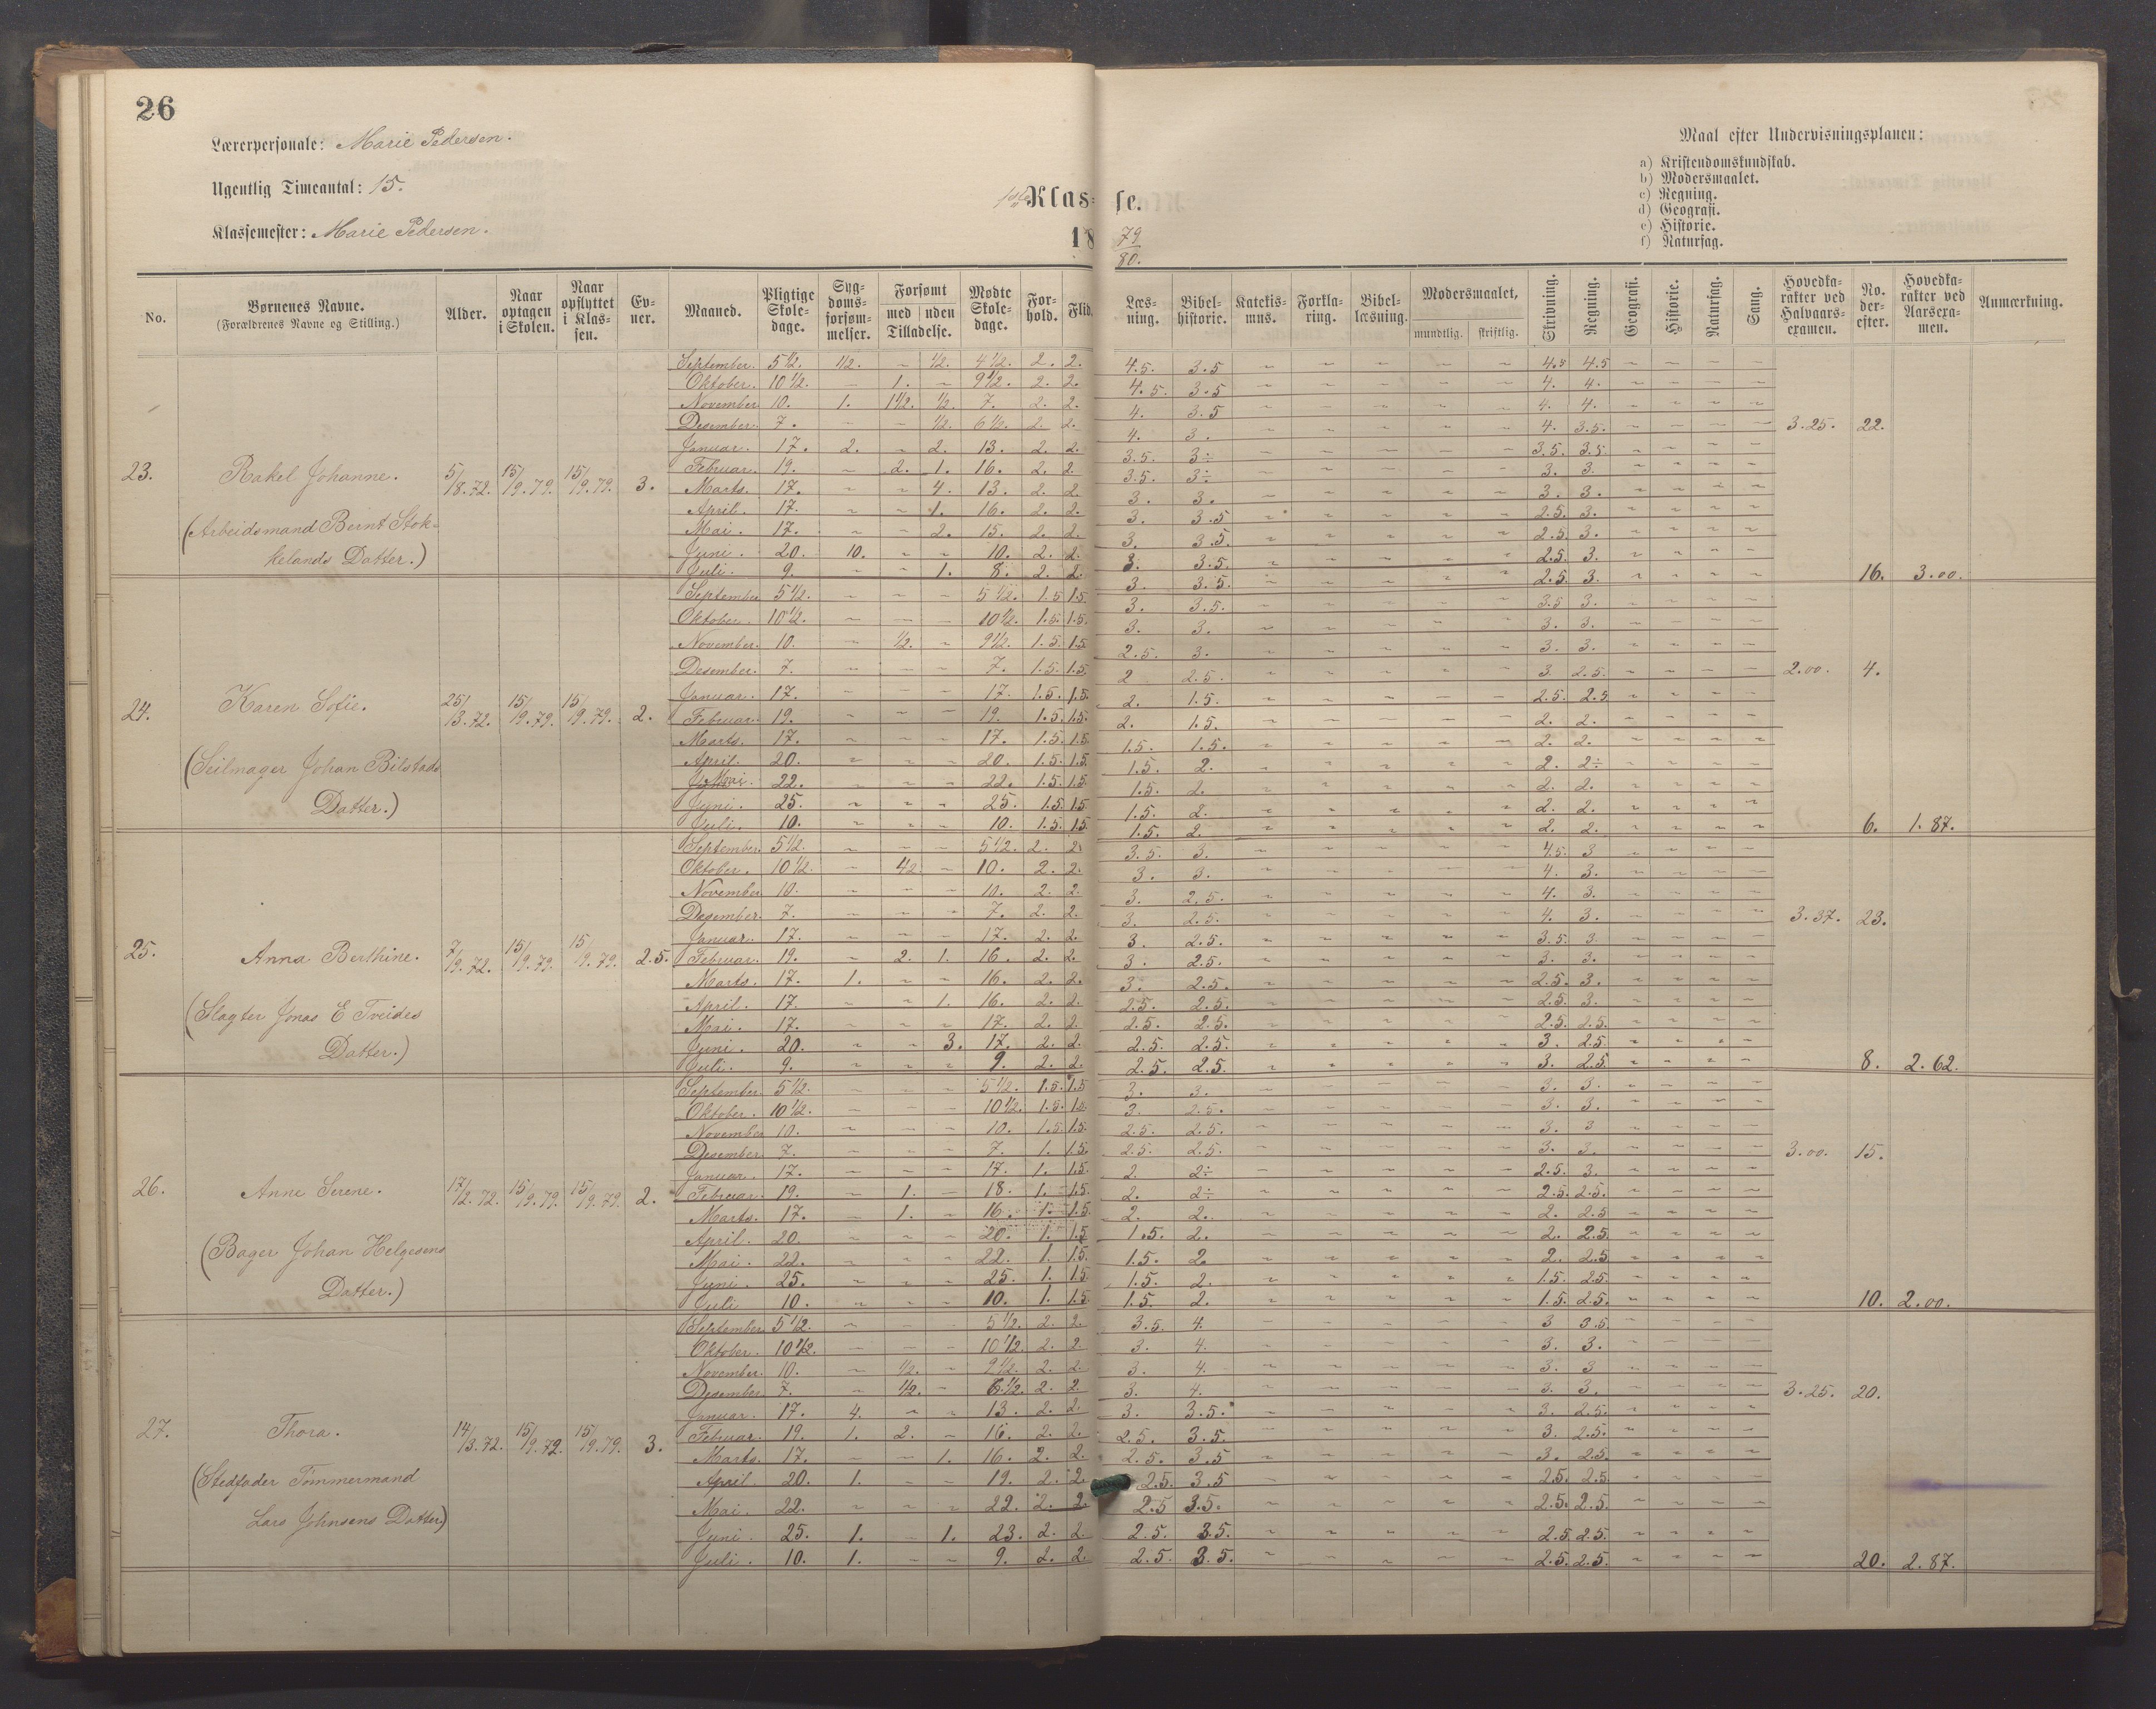 26
Lærerpersonale: Marie Pedersen.
Ugentlig Timeantal: 15.
Klassemester: Marie Pedersen.
1ste Klasse.
1879/80.
Maal efter Undervisningsplanen:
a) Kristendomskundskab.
b) Modersmaalet.
c) Regning.
d) Geografi.
e) Historie.
f) Naturfag.
No. | Børnenes Navne. (Forældrenes Navne og Stilling.) | Alder. | Naar optagen i Skolen. | Naar opflyttet i Klassen. | Evner. | Maaned. | Pligtige Skoledage. | Sygdomsforsømmelser. | Forsømt med Tilladelse. | uden Tilladelse. | Mødte Skoledage. | Forhold. | Flid. | Læsning. | Bibelhistorie. | Katekismus. | Forklaring. | Bibellæsning. | Modersmaalet, mundtlig. | skriftlig. | Skrivning. | Regning. | Geografi. | Historie. | Naturfag. | Sang. | Hovedkarakter ved Halvaarsexamen. | No. derefter. | Hovedkarakter ved Aarsexamen. | Anmærkning.
23. Rakel Johanne. 5/8.72. 15/9.79. 15/9.79. 3.
(Arbeidsmand Bernt Stokkelands Datter.)
September. 5 1/2. 1/2. ~ 1/2. 4 1/2. 2. 2. 4.5. 3.5 4.5 4.5
Oktober. 10 1/2. – 1. – 9 1/2. 2. 2. 4.5. 3.5 4. 4.
November 10. 1. 1 1/2. 1/2. 7. 2. 2. 4. 3.5 4. 4.
Desember. 7. – – 1/2. 6 1/2. 2. 2. 4. 3. 4. 3.5. 3.25. 22.
Januar. 17. 2. ~ 2. 13. 2. 2. 3.5. 3÷ 3.5. 3.5.
Februar. 19. ~ 2. 1. 16. 2. 2. 3.5. 3÷ 3. 3.
Marts. 17. ~ ~ 4. 13. 2. 2. 3. 3. 3. 3.
April. 17. ~ ~ 1. 16. 2. 2. 3. 3.5 2.5. 3.
Mai. 17. ~ ~ 2. 15. 2. 2. 3. 3.5. 2.5. 3.
Juni. 20. 10. ~ ~ 10. 2. 2. 3. 3.5. 2.5. 3.
Juli. 9. ~ ~ 1. 8. 2. 2. 3. 3.5. 2.5. 3. 16. 3.00.
24. Karen Sofie. 25/3.72. 15/9.79. 15/9.79. 2.
(Seilmager Johan Bilstads Datter.)
September 5 1/2. ~ ~ ~ 5 1/2. 1.5 1.5 3. 3.5. 3.5 3.
Oktober. 10 1/2. – – – 10 1/2. 1.5. 1.5. 3. 3. 3. 3.
November. 10. – 1/2. ~ 9 1/2. 1.5. 1.5 2.5. 3. 3. 3.
Desember. 7. ~ – – 7. 1.5. 1.5. 2 2.5. 3. 2.5. 2.00. 4.
Januar. 17. ~ – – 17. 1.5. 1.5. 2. 1.5. 2.5. 2.5
Februar. 19. ~ ~ – 19. 1.5. 1.5. 2. 1.5. 2. 2.
Marts. 17. ~ ~ ~ 17. 1.5. 1.5 1.5. 1.5. 2. 2.
April. 20. ~ ~ ~ 20. 1.5. 1.5. 1.5. 2. 2. 2÷
Mai. 22. ~ ~ ~ 22. 1.5. 1.5. 1.5. 2. 2. 2.
Juni. 25. ~ ~ ~ 25. 1.5. 1.5 1.5. 2. 2. 2.
Juli. 10. ~ ~ ~ 10. 1.5. 1.5. 1.5. 2. 2. 2. 6. 1.87.
25. Anna Berthine. 7/9.72. 15/9.79. 15/9.79. 2.5.
(Slagter Jonas E Tveides Datter.)
September. 5 1/2. ~ – – 5 1/2. 2. 2. 3.5. 3. 4.5. 3
Oktober. 10 1/2. – 1/2. – 10. 2. 2. 3. 3. 4. 3.
November 10. – ~ – 10. 2. 2. 3. 2.5. 4. 3.
Desember. 7. – ~ ~ 7. 2. 2. 3. 2.5. 4. 3. 3.37. 23.
Januar. 17. ~ – ~ 17. 2. 2. 3. 2.5. 3.5. 3.
Februar. 19. ~ 2. 1. 16. 2. 2. 3. 2.5. 3. 3.
Marts. 17. 1. ~ ~ 16. 2. 2. 3. 2.5. 2.5. 3.
April. 17. ~ ~ 1. 16. 2. 2. 2.5. 2.5. 2.5. 3.
Mai. 17. ~ ~ ~ 17. 2. 2. 2.5. 2.5. 2.5. 2.5.
Juni. 20. ~ ~ 3. 17. 2. 2. 2.5. 2.5. 3. 2.5
Juli. 9. ~ ~ ~ 9. 2. 2. 2.5. 2.5. 3. 2.5. 8. 2.62.
26. Anne Serene. 17/2.72. 15/9.79. 15/9.79. 2.
(Bager Johan Helgesens Datter.)
September 5 1/2. ~ – ~ 5 1/2. 1.5. 1.5 3. 3. 3. 3.
Oktober. 10 1/2. – – – 10 1/2. 1.5. 1.5. 3. 2.5. 3. 3.
November 10. ~ ~ ~ 10. 1.5. 1.5. 2.5. 2.5. 3. 3
Desember. 7. – ~ ~ 7. 1. 1.5. 2.5. 2.5. 3. 3. 3.00. 15.
Januar. 17. – ~ ~ 17. 1. 1.5. 2. 2÷ 2.5. 3.
Februar. 19. ~ 1. – 18. 1. 1.5. 2. 2÷ 2.5. 2.5.
Marts. 17. ~ 1. ~ 16. 1. 1.5. 2. 2. 2. 2.5
April. 20. ~ ~ ~ 20. 1. 1.5 1.5. 2. 2. 2.5.
Mai. 22. ~ ~ ~ 22. 1. 1.5. 1.5. 2. 2. 2.5
Juni. 25. ~ ~ ~ 25. 1. 1.5 1.5. 2. 1.5. 2.5.
Juli 10. ~ ~ ~ 10. 1. 1.5 1.5. 2. 1.5. 2.5. 10. 2.00.
27. Thora. 14/3.72. 15/9.72. 15/9.79. 3.
(Stedfader Tømmermand Lars Johnsens Datter.)
September 5 1/2. ~ – – 5 1/2. 2. 2. 3.5. 4. 3 3.5.
Oktober. 10 1/2. – – – 10 1/2. 2. 2. 3. 4. 3. 3.
November. 10. ~ 1/2. ~ 9 1/2. 2. 2. 3. 4. 3. 3
Desember 7. – 1/2. – 6 1/2. 2. 2 3. 4. 3. 3. 3.25. 20.
Januar. 17. 4. ~ ~ 13. 2. 2. 3. 3.5. 3. 2.5.
Februar. 19. 1. 2. ~ 16. 2. 2. 2.5. 3.5. 3. 2.5.
Marts. 17. – – 1. 16. 2. 2. 2.5. 3.5 3. 2.5
April. 20. 1. – ~ 19. 2. 2. 2.5. 3.5 2.5. 2.5.
Mai. 22. ~ ~ ~ 22. 2. 2. 2.5 3.5. 2.5. 2.5.
Juni. 25. 1. – 1. 23. 2. 2. 2.5. 3.5. 2.5. 2.5.
Juli. 10. 1. – ~ 9. 2. 2. 2.5. 3.5. 2.5. 2.5. 20. 2.87.